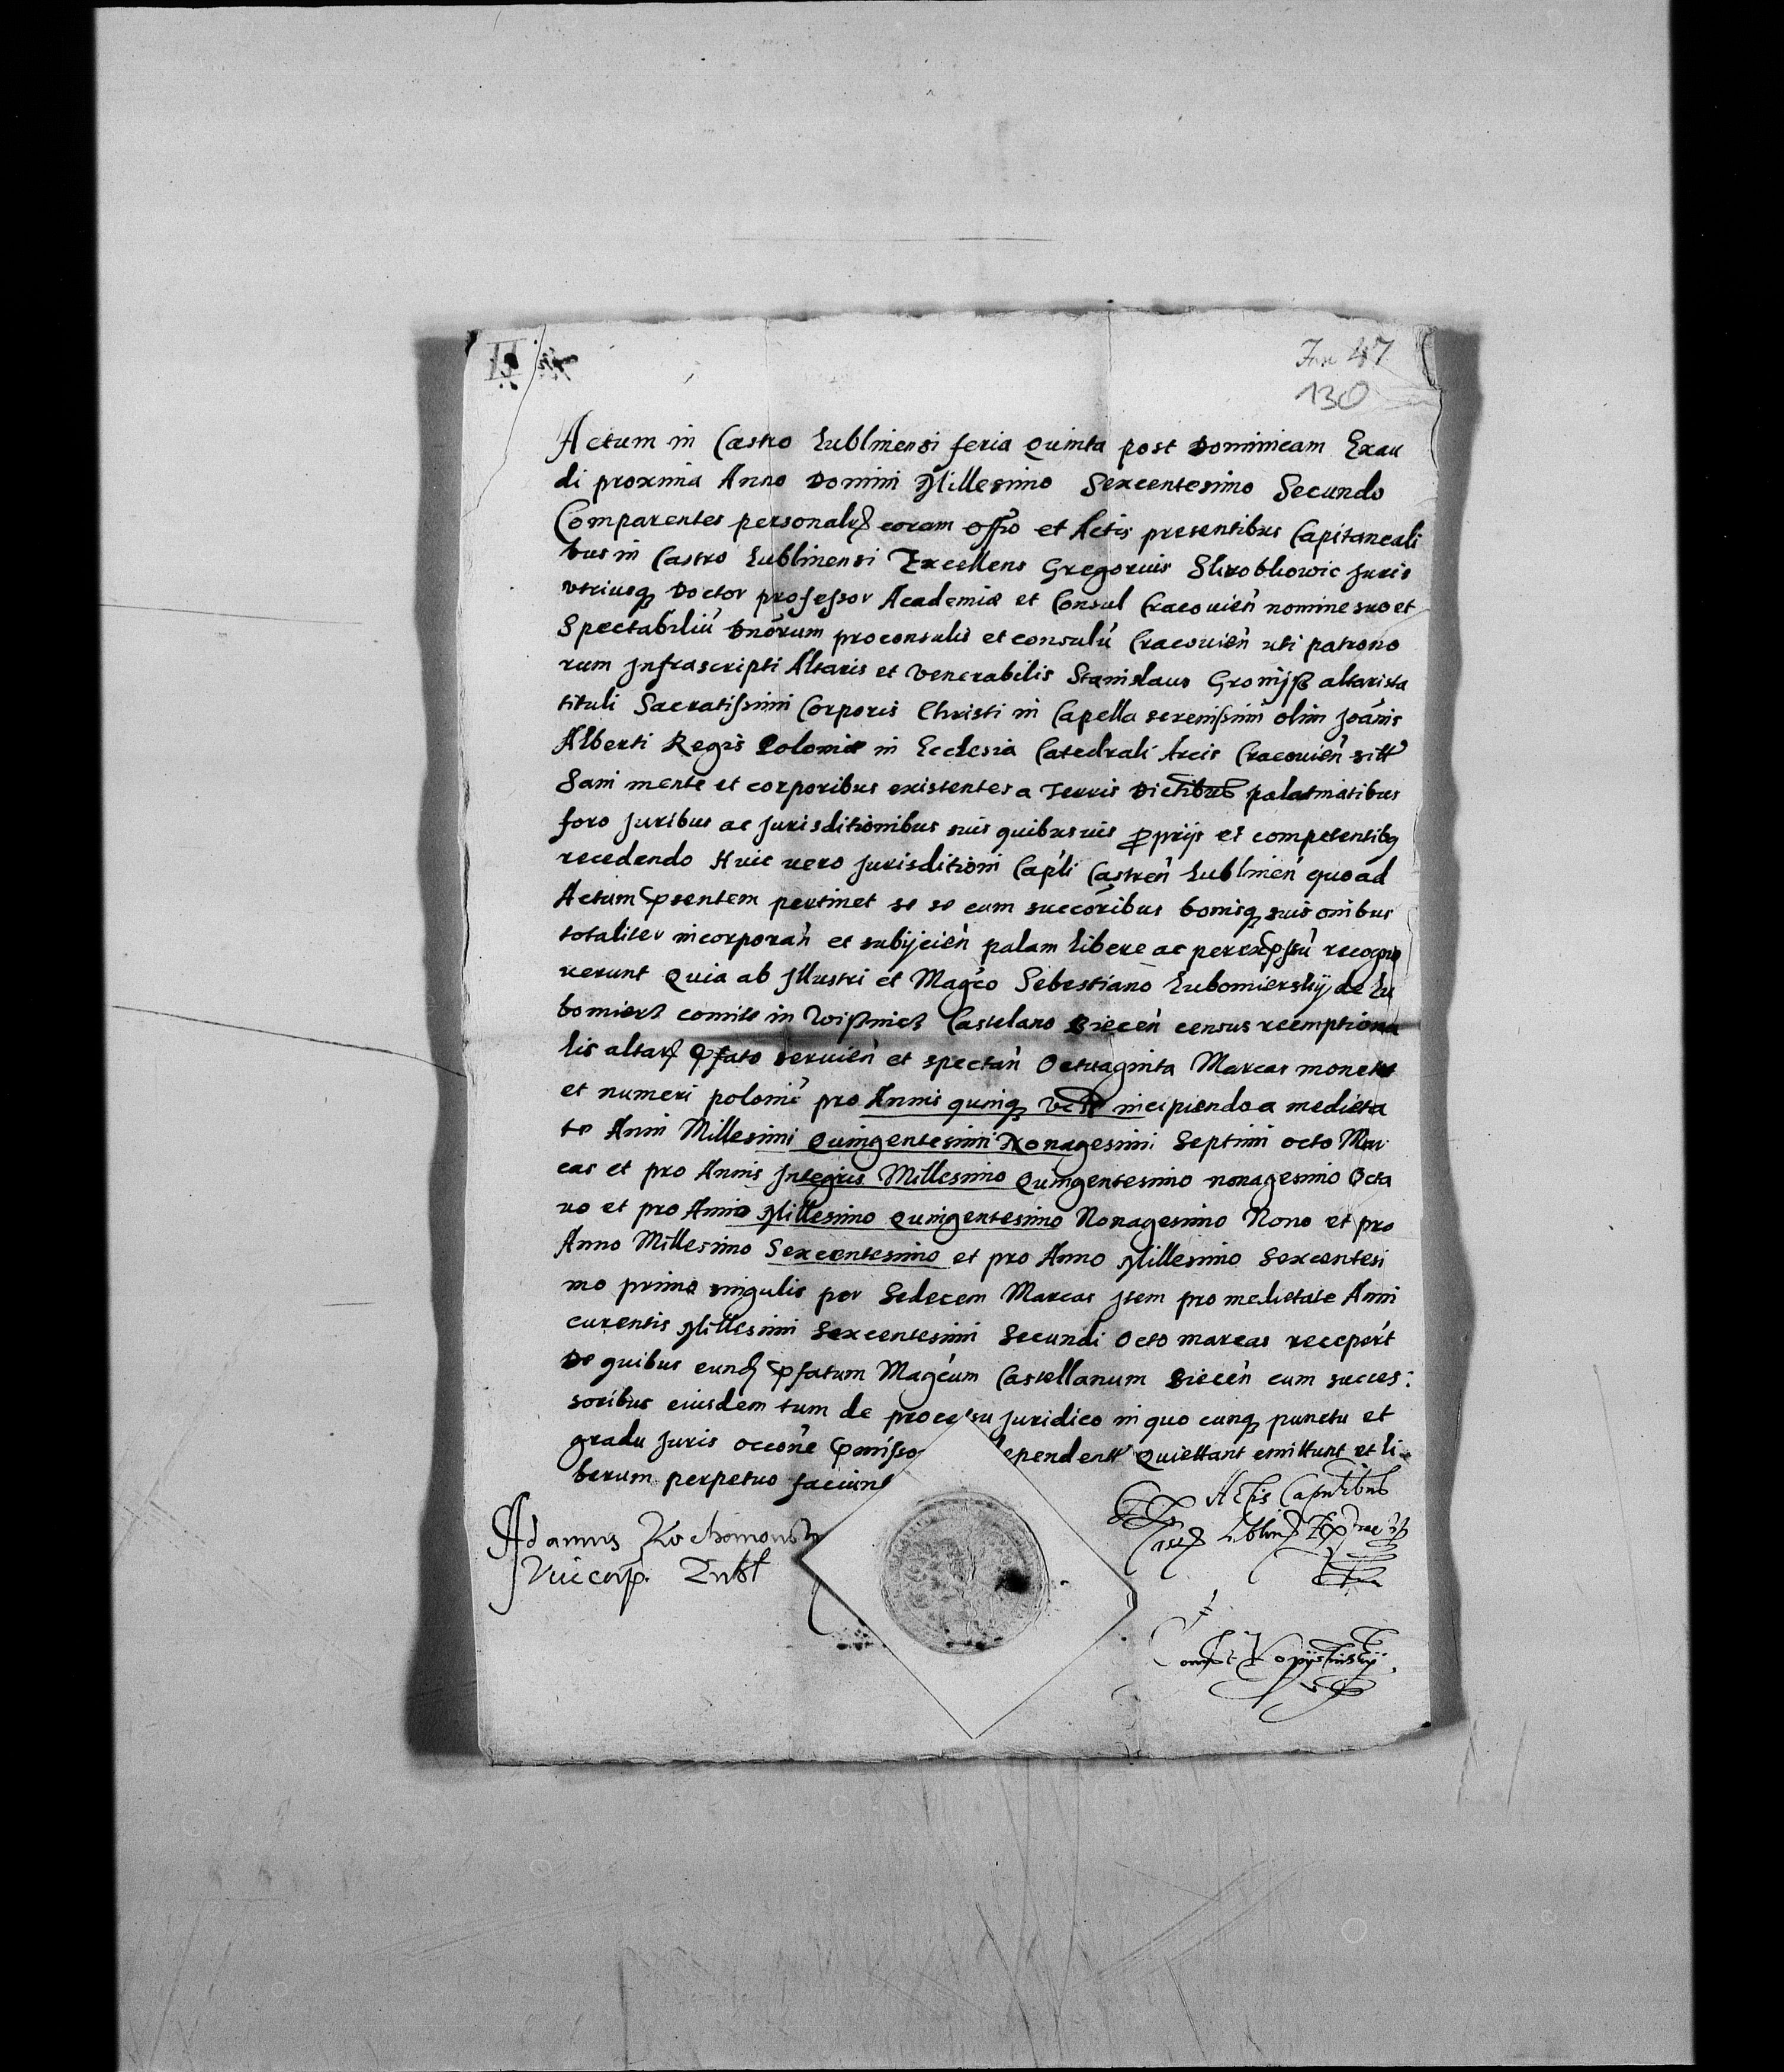 Jun 47
130
Actum in Castro Lublinensi feria Quinta post Dominicam Exau
di proxima Anno Domini Millesimo Sexcentesimo Secundo
Comparentes personalr coram offo et Actis presentibus Capitaneali
bus in Castro Lublinensi Excellens Gregorius Skrobkowic Juris
vtriusq Doctor professor Academiæ et Consul Cracouien nomine suo et
Spectabiliu Dnorum proconsulis et consulu Cracouien uti patrono
rum Infrascripti Altaris et Venerabilis Stanislaus altarista
tituli Sacratissimi Corporis Christi in Capella serenissimi olim Joanis
Alberti Regis Poloniæ in Ecclesia Catedrali Arcis Cracouien sitt
Sani mente et corporibus existentes a Terris Dictibus palatinatibus
foro Juribus ac Jurisditionibus suis quibusuis pprijs et competentibq
recedendo Huic vero Jurisditioni Capli Castren Lublinen quoad
Actum psentem pertinet se se cum succoribus bonisq suis onibus
totaliter incorporan et subijcien palam libere ac per expssu recogno
uerunt Quia ab Illustri et Magco Sebestiano Lubomierskij de Lu
bomierz comite in Wisznicz Castelano Biecen census reemptiona
lis altari pfato seruien et spectan Octuaginta Marcas monetæ
et numeri polonic pro Annis quinq incipiendo a medieta
te Anni Millesimi Quingentesimi Nonagesimi Septimi octo Mar
cas et pro Annis Integris Millesimo Quingentesimo nonagesimo Octa
uo et pro Anno Millesimo Quingentesimo Nonagesimo Nono et pro
Anno Millesimo Sexcentesimo et pro Anno Millesimo Sexcentesi
mo primo singulis per Sedecem Marcas Item pro medietate Anni
curentis Millesimi Sexcentesimi Secundi Octo marcas recepert
De quibus eund pfatum Magcum Castellanum Biecen cum succes:
soribus eiusdem tum de processu Juridico in quo cunq punctu et
gradu Juris occone pmisso ependent Quiettant emittunt et li
berum perpetuo faciunt
Ex Actis Capnlibus
Adamus Kochanowsky
Castr Lublin Extrac
Vicecap. Lubl